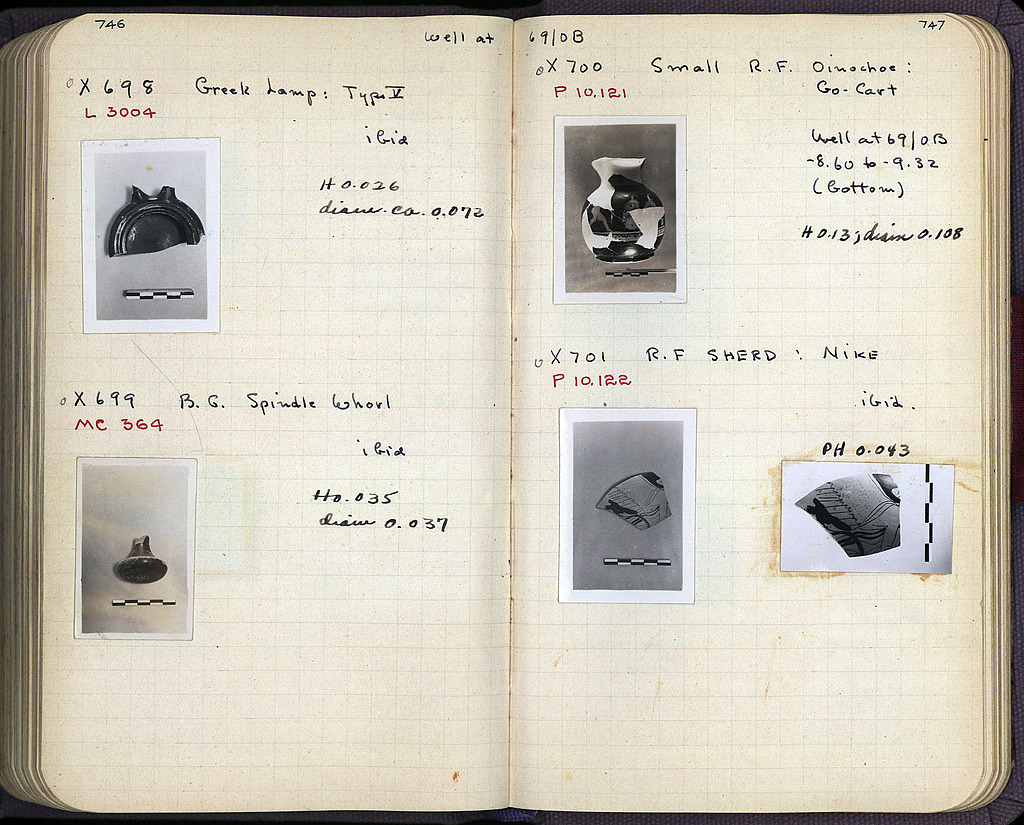 746
Well at
X 698 Greek Lamp: Type V
L 3004
ibid
H 0.026
diam. ca. 0.072
X 699 B.G. Spindle Whorl
MC 364
ibid
H 0.035
diam 0.037
69/ΟΒ
747
X 700 Small R.F. Oinochoe:
P 10,121
Go-Cart
Well at 69/ΟΒ
-8.60 to -9.32
(bottom)
H 0.13; diam 0.108
X 701 R.F SHERD : NIKE
P 10,122
ibid.
PH 0.043